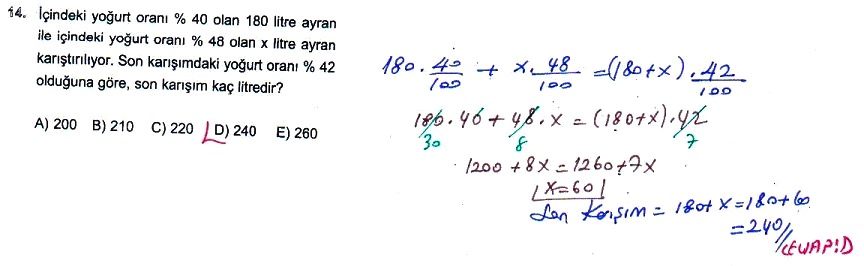 14. İçindeki yoğurt oranı % 40 olan 180 litre ayran
ile içindeki yoğurt oranı % 48 olan x litre ayran
karıştırılıyor. Son karışımdaki yoğurt oranı % 42
olduğuna göre, son karışım kaç litredir?
A) 200 B) 210 C) 220 D) 240 E) 260
180 . 40/100 + x . 48/100 = (180+x) . 42/100
180 . 40 + 48 . x = (180+x) . 42
30 8 7
1200 + 8x = 1260 + 7x
x = 60
Son Karışım = 180+x = 180+60
= 240 //
CEVAP:D